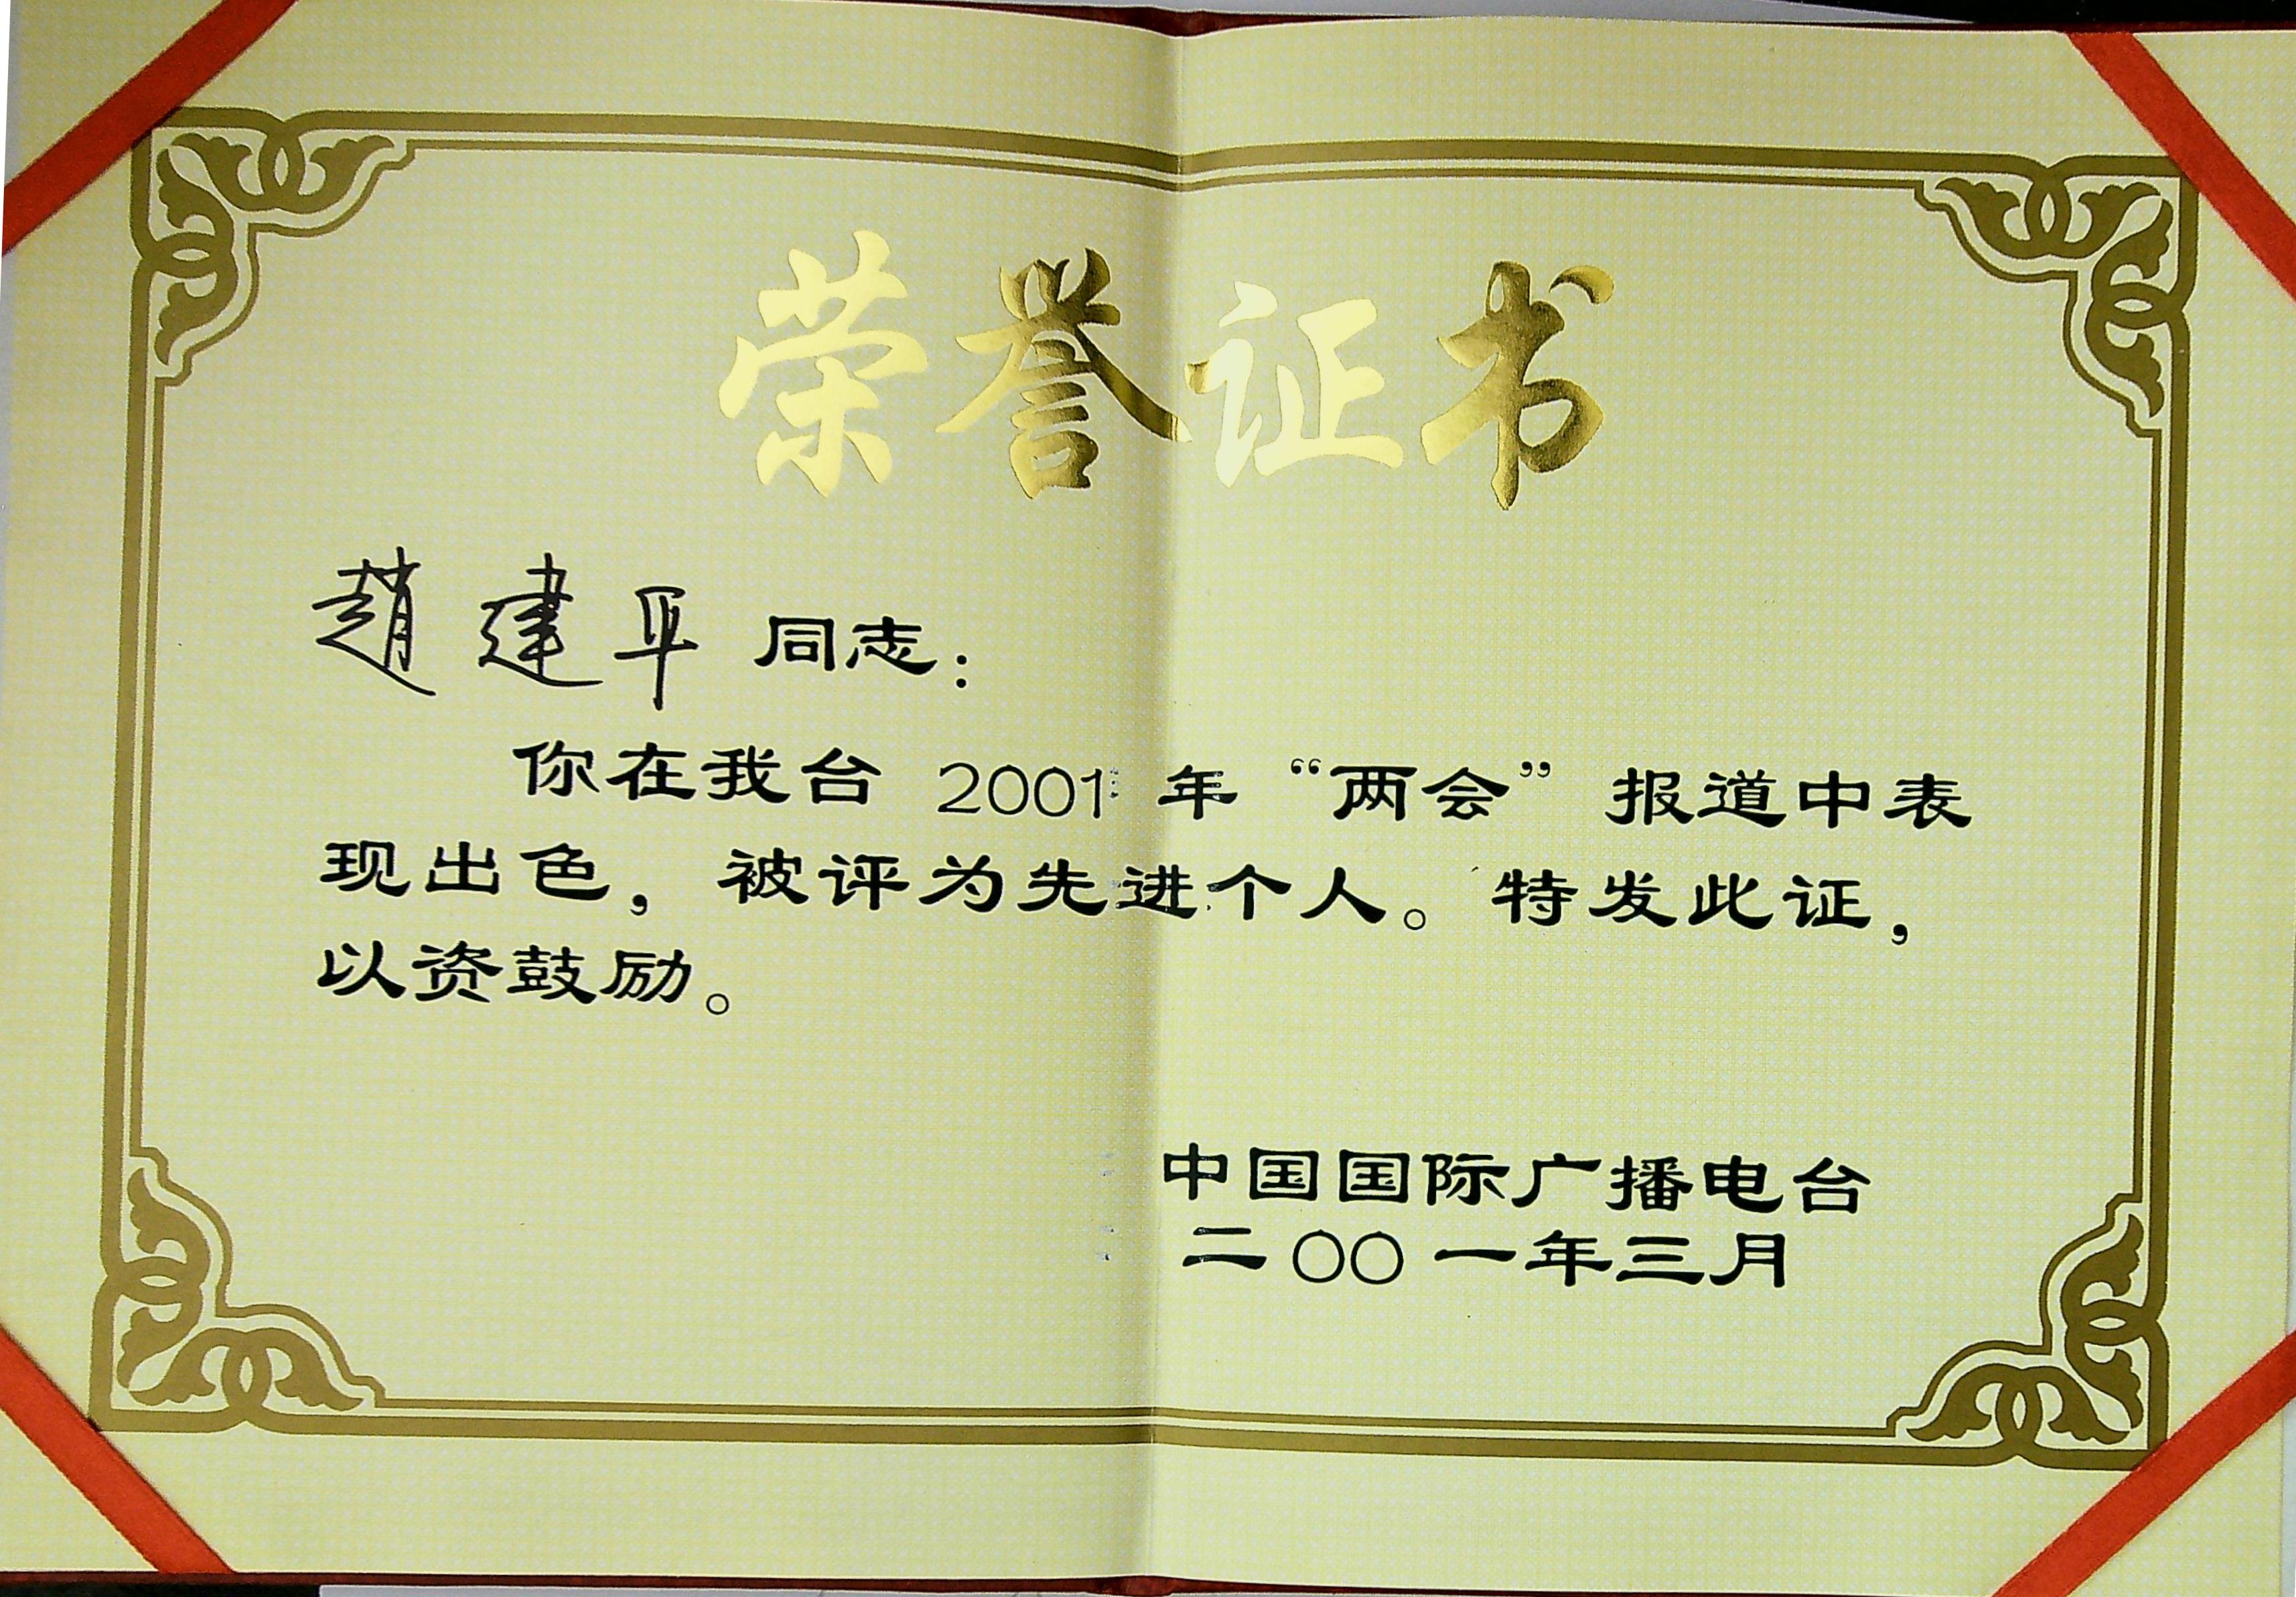 荣誉证书
趙建平 同志：
你在我台 2001 年 “两会” 报道中表
现出色，被评为先进个人。特发此证，
以资鼓励。
中国国际广播电台
二〇〇一年三月